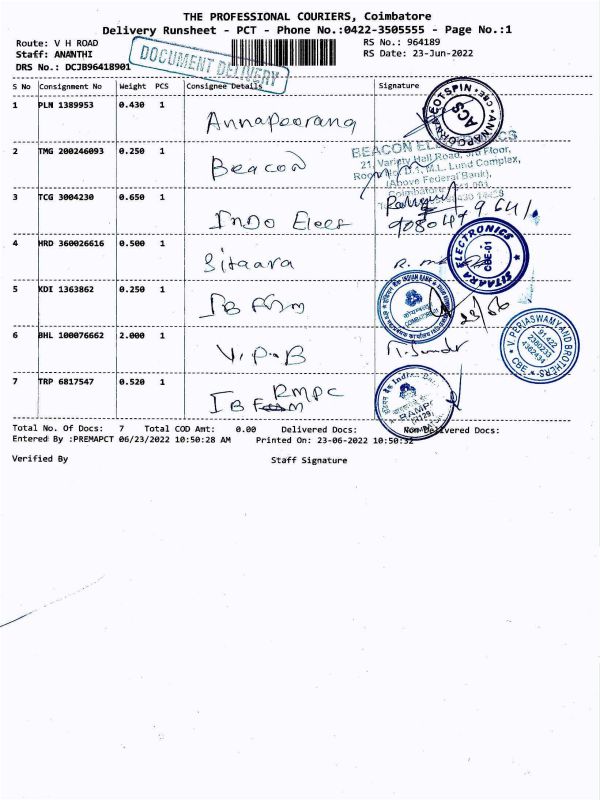 THE PROFESSIONAL COURIERS, Coimbatore
Delivery Runsheet - PCT - Phone No.:0422-3505555 - Page No.:1
Route: V H ROAD
RS No.: 964189
Staff: ANANTHI
RS Date: 23-Jun-2022
DRS No.: DCJB96418901
DOCUMENT DELIVERY
S No Consignment No Weight PCS Consignee Details Signature
1 PLN 1389953 0.430 1
Annapoorana
ANNAPOORNA COTSPIN CBE
ACS
2 TMG 200246093 0.250 1
Beacon
BEACON ELECTRONICS
21, Variety Hall Road, 3rd Floor,
Room No. D.1, M.L. Lund Complex,
(Above Federal Bank),
Coimbatore
3 TCG 3004230 0.650 1
Indo Elees
4 HRD 360026616 0.500 1
Sitaara
SITAARA ELECTRONICS
CBE-01
5 KDI 1363862 0.250 1
IB
INDIAN BANK
COIMBATORE
23/06
6 BHL 100076662 2.000 1
V.P.B
V. PERIASWAMY AND BROTHERS
91 422
2380233
4382434
CBE
7 TRP 6817547 0.520 1
IB RMPC
Indian Bank
Total No. Of Docs: 7 Total COD Amt: 0.00 Delivered Docs: Non Delivered Docs:
Entered By :PREMAPCT 06/23/2022 10:50:28 AM Printed On: 23-06-2022 10:50:32
Verified By Staff Signature